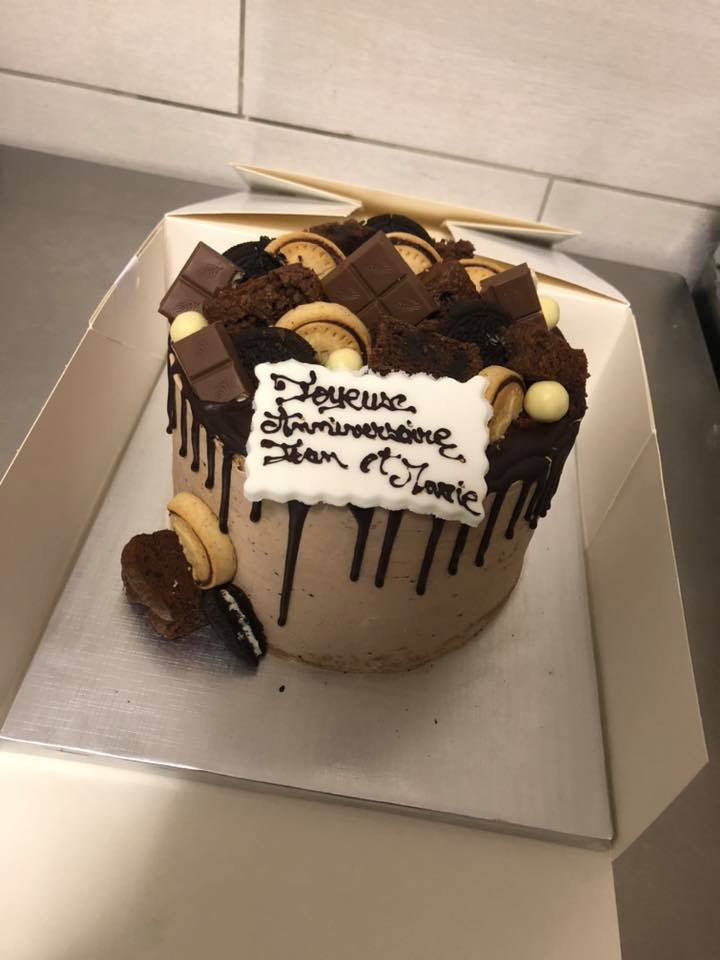 Joyeux
Anniversaire
Jean et Marie